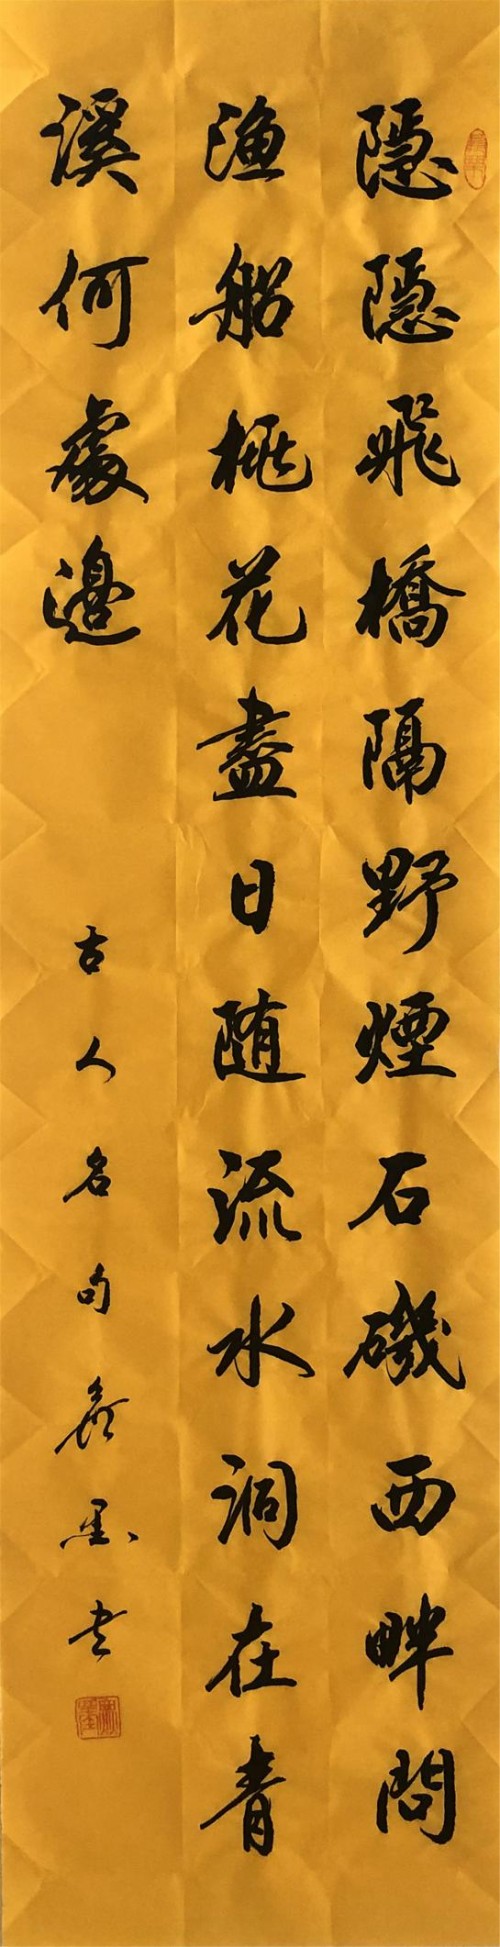 隱隱飛橋隔野煙石磯西畔問
渔船桃花盡日随流水洞在青
溪何處邊
古人名句 墨书